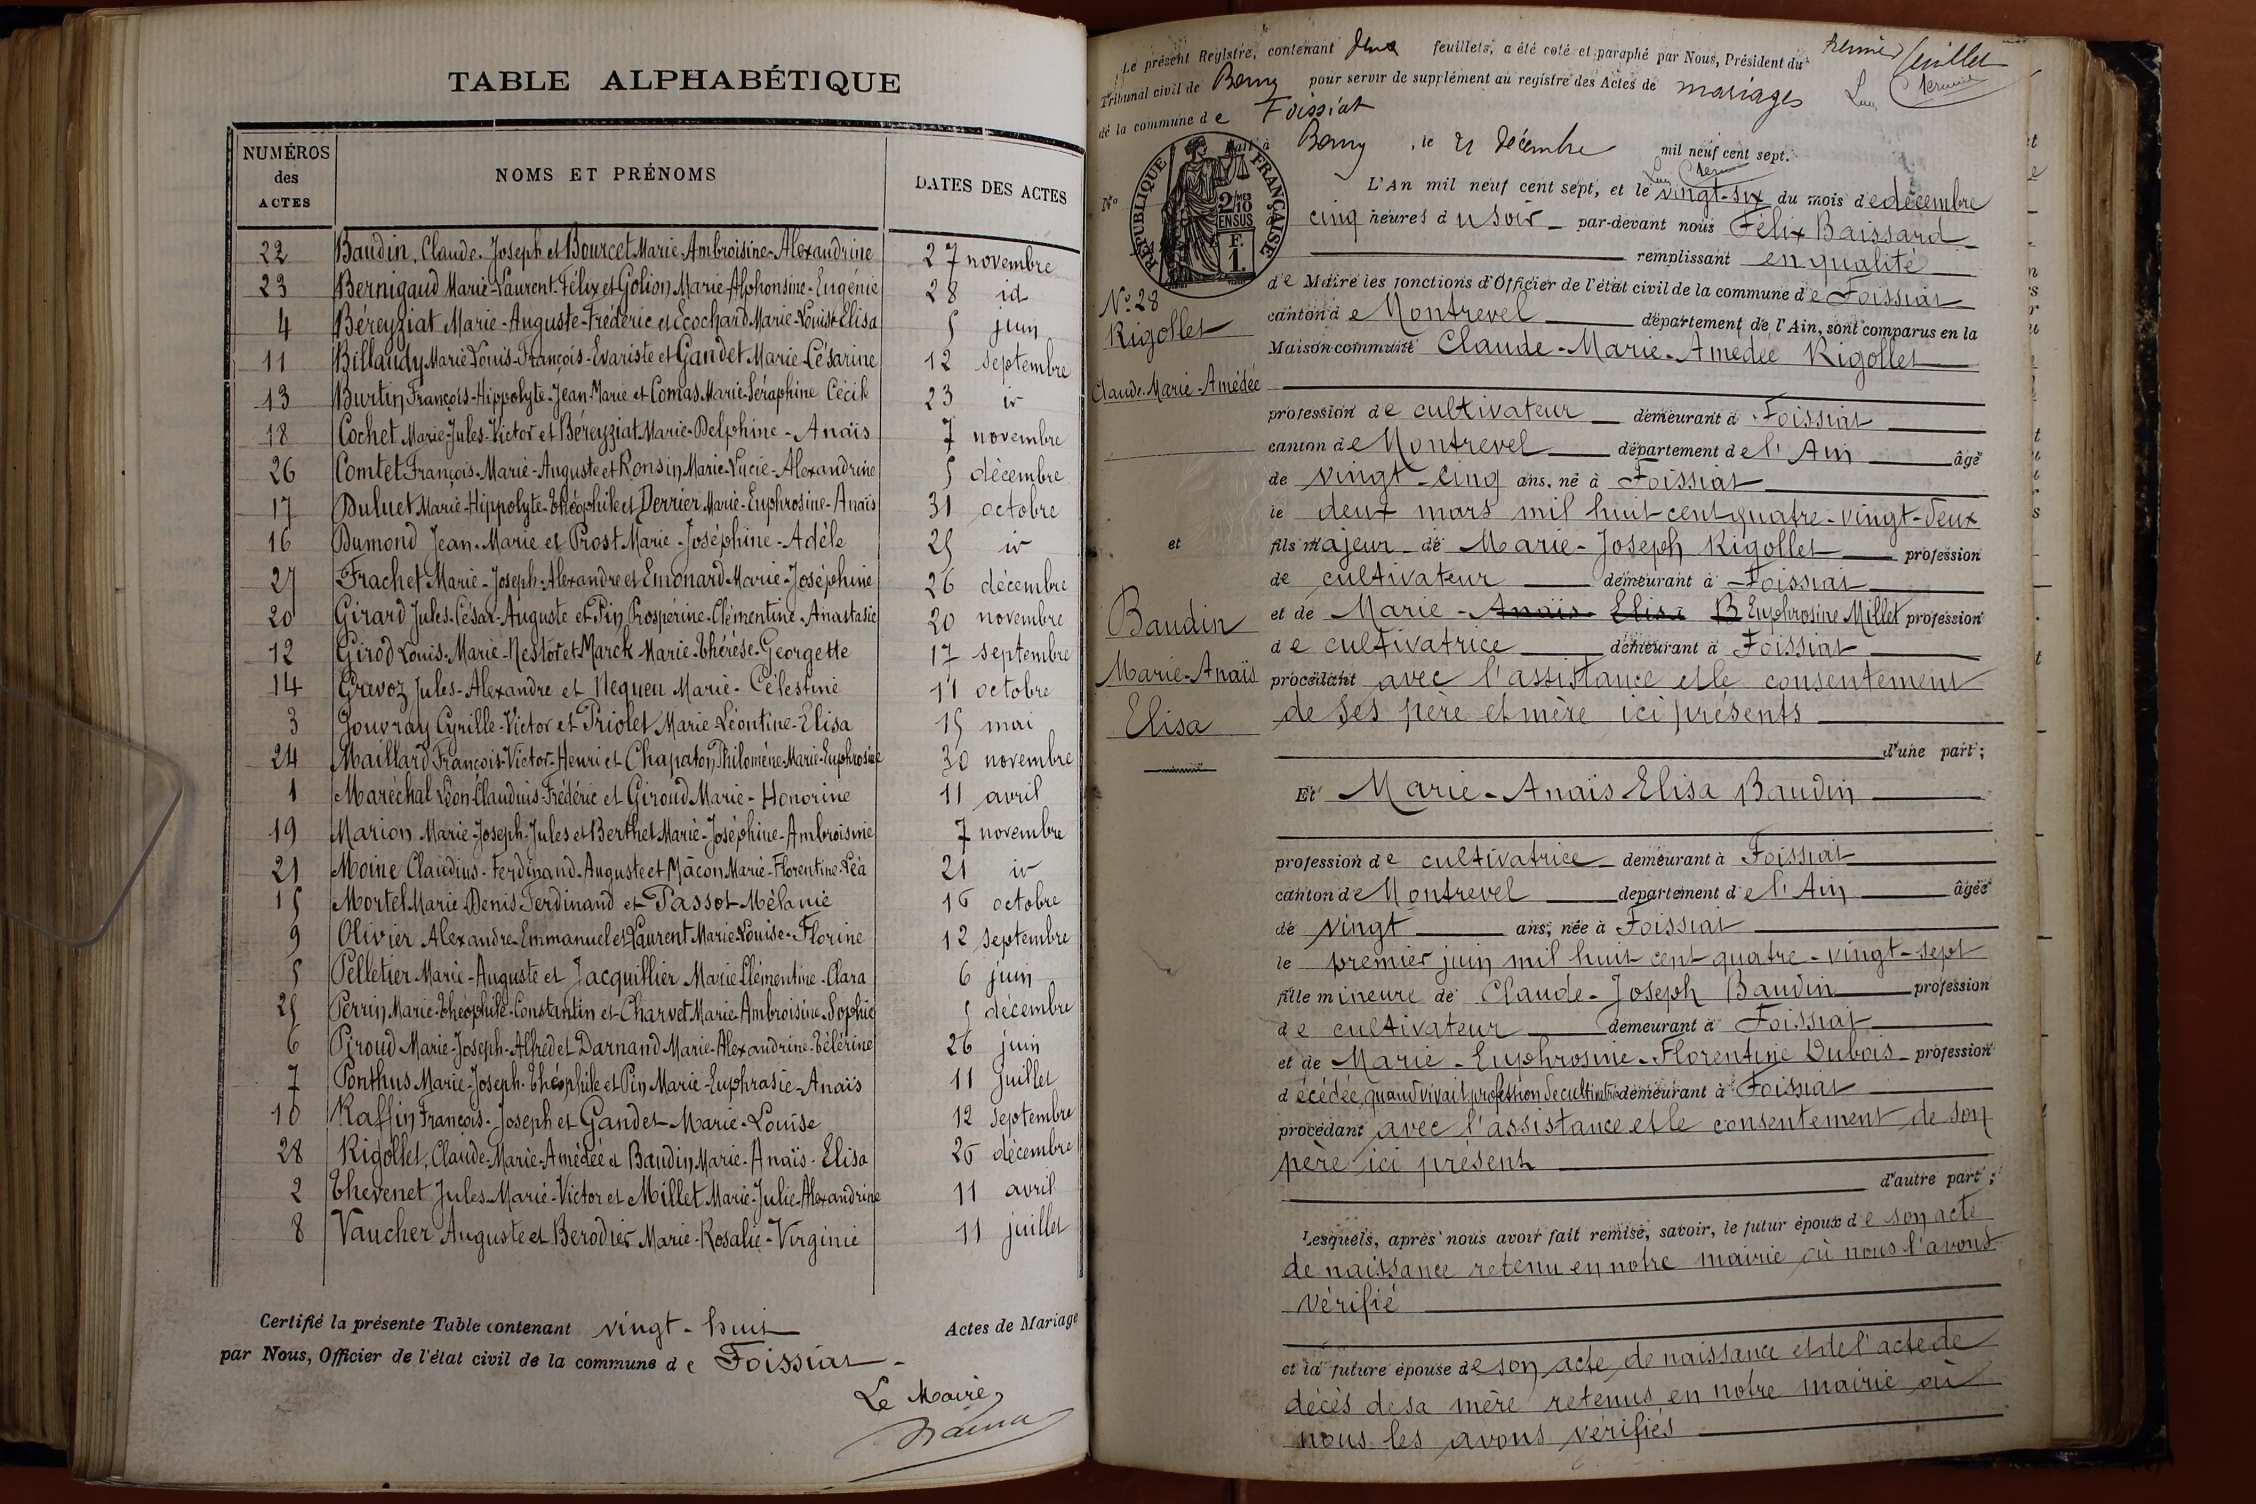 TABLE ALPHABÉTIQUE
NUMÉROS des ACTES NOMS ET PRÉNOMS DATES DES ACTES
22 Baudin, Claude-Joseph et Bourcet Marie-Ambroisine-Alexandrine 27 novembre
23 Bernigaud Marie-Laurent-Félix et Golion Marie-Alphonsine-Eugénie 28 id
4 Béreyziat Marie-Auguste-Frédéric et Ecochard Marie-Louise-Elisa 5 juin
11 Billaudy Marie Louis-François-Evariste et Gandet Marie-Césarine 12 septembre
13 Burtin François-Hippolyte-Jean-Marie et Comas Marie-Séraphine Cécile 23 id
18 Cochet Marie-Jules-Victor et Béreyziat Marie-Delphine-Anaïs 7 novembre
26 Comtet François-Marie-Auguste et Ronsin Marie-Lucie-Alexandrine 5 décembre
17 Duluet Marie-Hippolyte-Théophile et Derrier Marie-Euphrosine-Anaïs 31 octobre
16 Dumond Jean-Marie et Prost Marie-Joséphine-Adèle 25 id
27 Frachet Marie-Joseph-Alexandre et Emonard Marie-Joséphine 26 décembre
20 Girard Jules-César-Auguste et Pin Prospérine-Clémentine-Anastasie 20 novembre
12 Girod Louis-Marie-Nestor et Marck Marie-Thérèse-Georgette 17 septembre
14 Gravoz Jules-Alexandre et Nequeu Marie-Célestine 11 octobre
3 Jouvray Cyrille-Victor et Priolet Marie Léontine-Elisa 15 mai
24 Maillard François-Victor-Henri et Chapaton Philomène-Marie-Euphrosine 30 novembre
1 Maréchal Léon-Claudius-Frédéric et Giroud Marie-Honorine 11 avril
19 Marion Marie-Joseph-Jules et Berthet Marie-Joséphine-Ambroisine 7 novembre
21 Moine Claudius-Ferdinand-Auguste et Mâcon Marie-Florentine-Léa 21 id
15 Mortel Marie-Denis Ferdinand et Passot Mélanie 16 octobre
9 Olivier Alexandre-Emmanuel et Laurent Marie-Louise-Florine 12 septembre
5 Pelletier Marie-Auguste et Jacquillier Marie Clémentine-Clara 6 juin
25 Perrin Marie-Théophile-Constantin et Charvet Marie-Ambroisine-Sophie 5 décembre
6 Piroud Marie-Joseph-Alfred et Darnand Marie-Alexandrine-Célérine 26 juin
7 Ponthus Marie-Joseph-Théophile et Pin Marie-Euphrasie-Anaïs 11 juillet
10 Raffin François-Joseph et Gandet Marie-Louise 12 septembre
28 Rigollet, Claude-Marie-Amédée et Baudin Marie-Anaïs-Elisa 26 décembre
2 Thevenet Jules-Marie-Victor et Millet Marie-Julie-Alexandrine 11 avril
8 Vaucher Auguste et Berodier Marie-Rosalie-Virginie 11 juillet
Certifié la présente Table contenant vingt-huit Actes de Mariage
par Nous, Officier de l'état civil de la commune de Foissiat
Le Maire,
Le présent Registre, contenant deux feuillets, a été coté et paraphé par Nous, Président du
premier feuillet
Tribunal civil de Bourg pour servir de supplément au registre des Actes de mariages
de la commune de Foissiat
Fait à Bourg, le 21 décembre mil neuf cent sept.
RÉPUBLIQUE FRANÇAISE
2/10 MES
EN SUS
F.
1.
N°
L'An mil neuf cent sept, et le vingt-six du mois de décembre
cinq heures du soir par-devant nous Félix Baissard
remplissant en qualité
de Maire les fonctions d'Officier de l'état civil de la commune de Foissiat
N° 28
canton de Montrevel département de l'Ain, sont comparus en la
Rigollet
Maison commune Claude-Marie-Amédée Rigollet
Claude-Marie-Amédée
profession de cultivateur demeurant à Foissiat
canton de Montrevel département de l'Ain âgé
de vingt-cinq ans, né à Foissiat
le deux mars mil huit cent quatre-vingt-deux
et
fils majeur de Marie-Joseph Rigollet profession
de cultivateur demeurant à Foissiat
et de Marie-Anaïs-Elisa B Euphrosine Millet profession
Baudin
de cultivatrice demeurant à Foissiat
Marie-Anaïs
procédant avec l'assistance et le consentement
Elisa
de ses père et mère ici présents
d'une part;
Et Marie-Anaïs Elisa Baudin
profession de cultivatrice demeurant à Foissiat
canton de Montrevel département de l'Ain âgée
de vingt ans, née à Foissiat
le premier juin mil huit cent quatre-vingt-sept
fille mineure de Claude-Joseph Baudin profession
de cultivateur demeurant à Foissiat
et de Marie-Euphrosine-Florentine Dubois profession
décédée, quand vivait profession de cultivatrice demeurant à Foissiat
procédant avec l'assistance et le consentement de son
père ici présent
d'autre part;
Lesquels, après nous avoir fait remise, savoir, le futur époux de son acte
de naissance retenu en notre mairie où nous l'avons
vérifié
et la future épouse de son acte de naissance et de l'acte de
décès de sa mère retenus en notre mairie où
nous les avons vérifiés